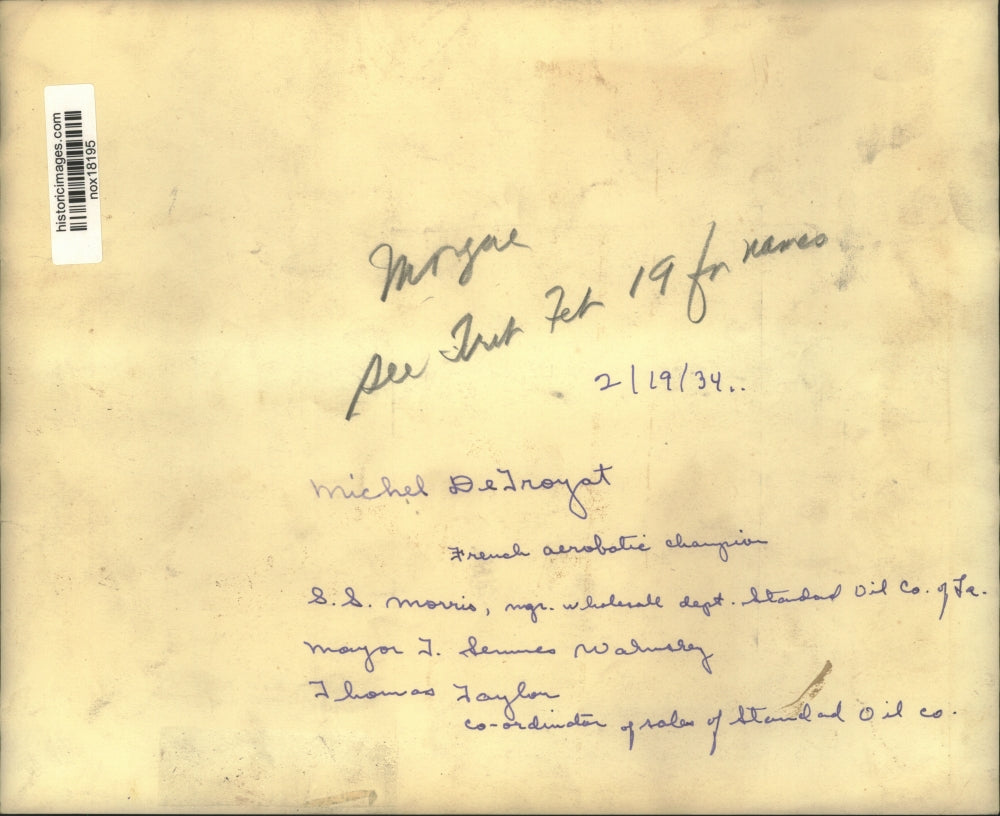 historicimages.com
nox18195
Morgue
See First Feb 19 for names
2/19/34..
Michel DeTroyat
French aerobatic champion
S.S. Morris, mgr. wholesale dept. Standad Oil Co. of La.
Mayor T. Semmes Walmsley
Thomas Taylor
co-ordinator of sales of Standad Oil co.